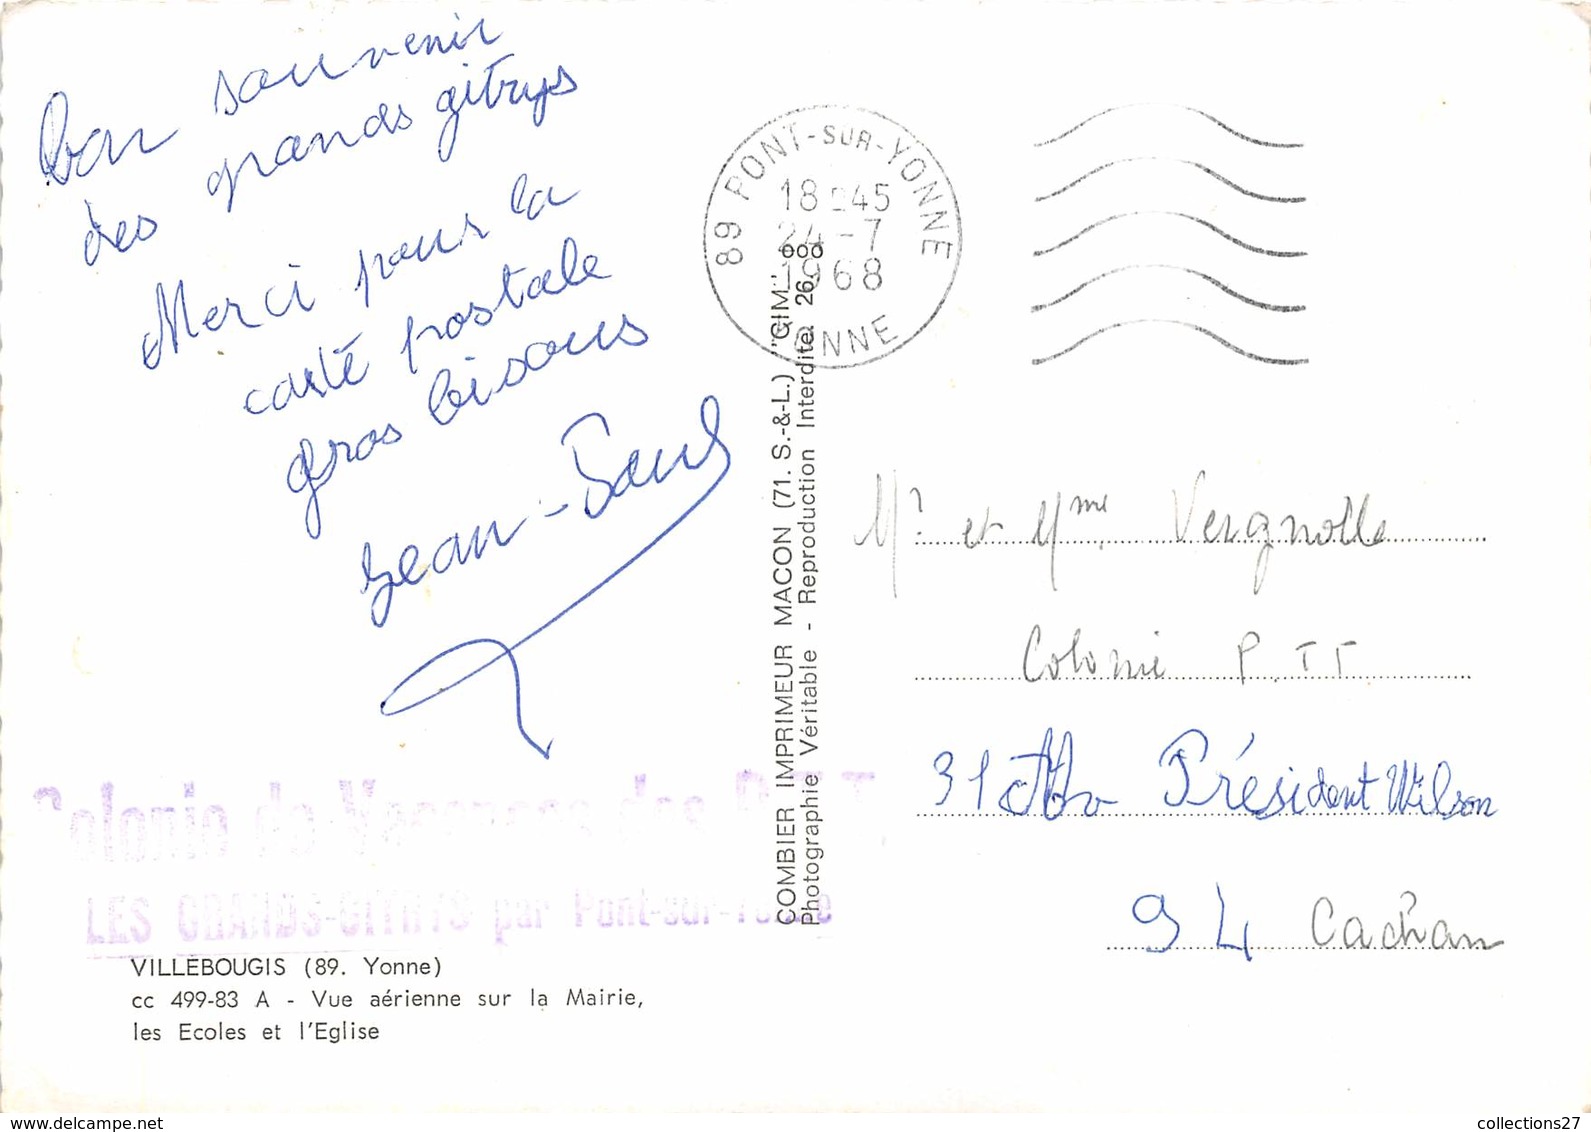 Bon souvenir
des grands gitrys
Merci pour la
carte postale
gros bisous
Jean-Paul
Colonie de Vacances des P.T.T
LES GRANDS-GITRYS par Pont-sur-Yonne
VILLEBOUGIS (89. Yonne)
cc 499-83 A - Vue aérienne sur la Mairie,
les Ecoles et l'Eglise
COMBIER IMPRIMEUR MACON (71. S.-&-L.) "CIM"
Photographie Véritable - Reproduction Interdite
89 PONT-SUR-YONNE
18 45
24-7
1968
YONNE
Mr et Mme Vergnolle
Colonie P.T.T
31 Président Wilson
94 Cachan
collections27